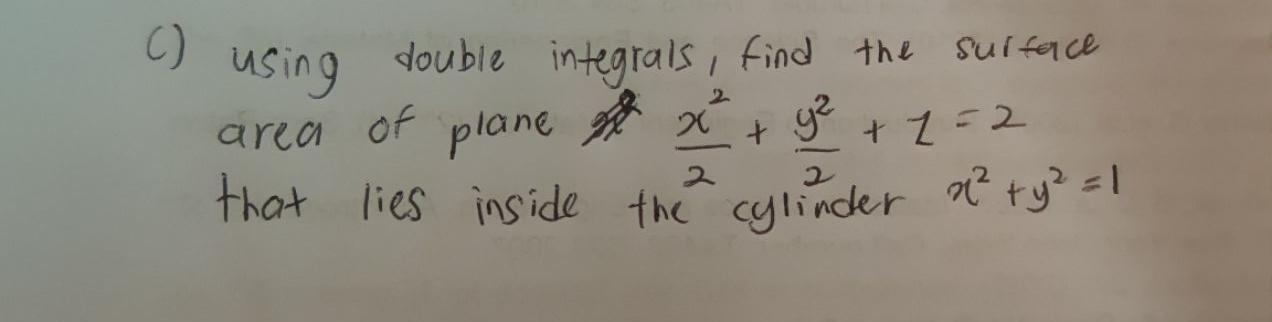 c) using double integrals, find the surface
area of plane x²/2 + y²/2 + z = 2
that lies inside the cylinder x² + y² = 1